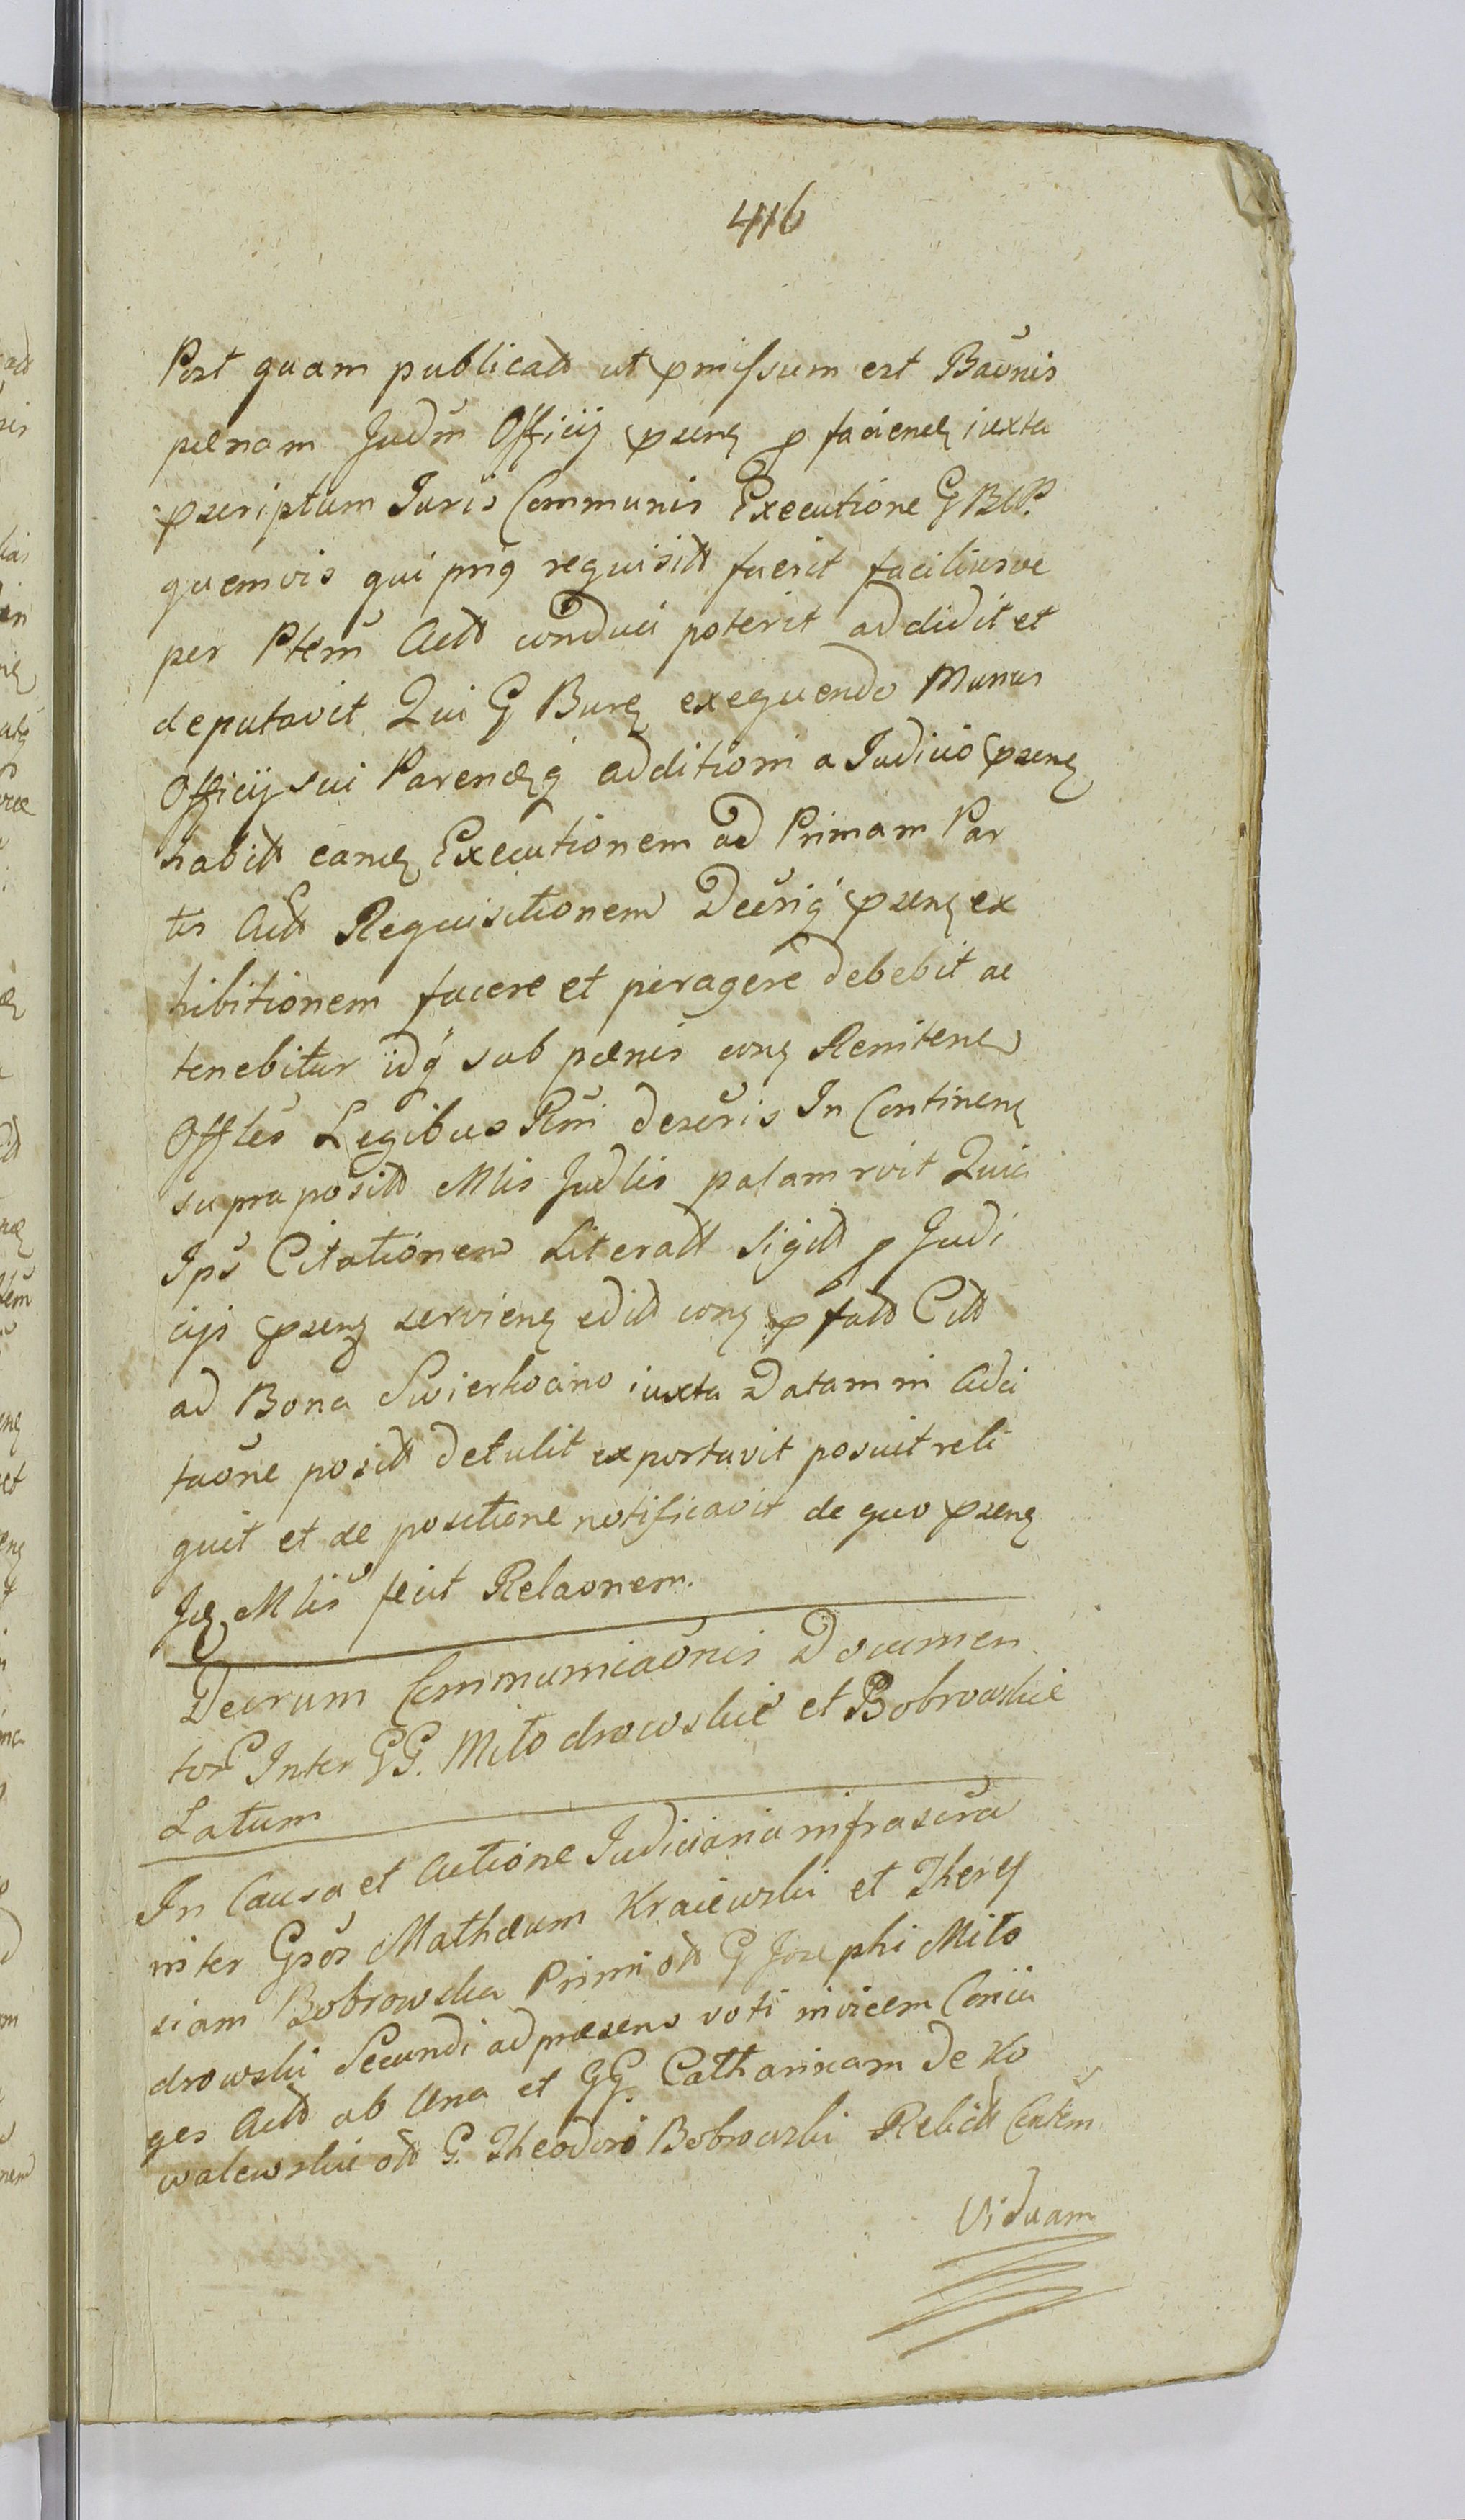 416
Post quam publicatt ut pmissum est Baonis
pœnam Judm Officij psens p faciend iuxta
pscriptum Juris Communis Executione G BLP.
quemvis qui prig requisitt fuerit faciliusve
per Ptem Actt conduci poterit addidit et
deputavit Qui G Burg exequendo Munus
Officij sui Parendq additioni a Judicio psens
habitt eand Executionem ad Primam Par
tis Actt Requisitionem Decriq psens ex
hibitionem facere et peragere debebit ac
tenebitur idq sub pœnis con Renitenes
Offles Legibus Rni descris In Continen
supra positt Mlis Judlis palam vit Quia
Ips Citationem Literatt Sigitt p Judi
cijs psens servien editt con pfatt Citt
ad Bona Swierkocino iuxta Datam in Acti
taone positt detulit exportavit posuit reli
quit et de positione notificavit de quo psens
Jd Mlis fecit Relaonem.
Decrum Communicaonis Documen
tor Inter GG. Miłodrowskie et Bobrowskie
Latum
In Causa et Actione Judiciaria infrascra
inter Gsos Mathæum Kraiewski et There
siam Bobrowska Primi ott G Josephi Miło
drowski Secundi ad præsens voti invicem Coniu
ges Actt ab Una et GG. Catharinam de Ko
walewskie ott G. Theodori Bobrowski Relictt Contem
Viduam